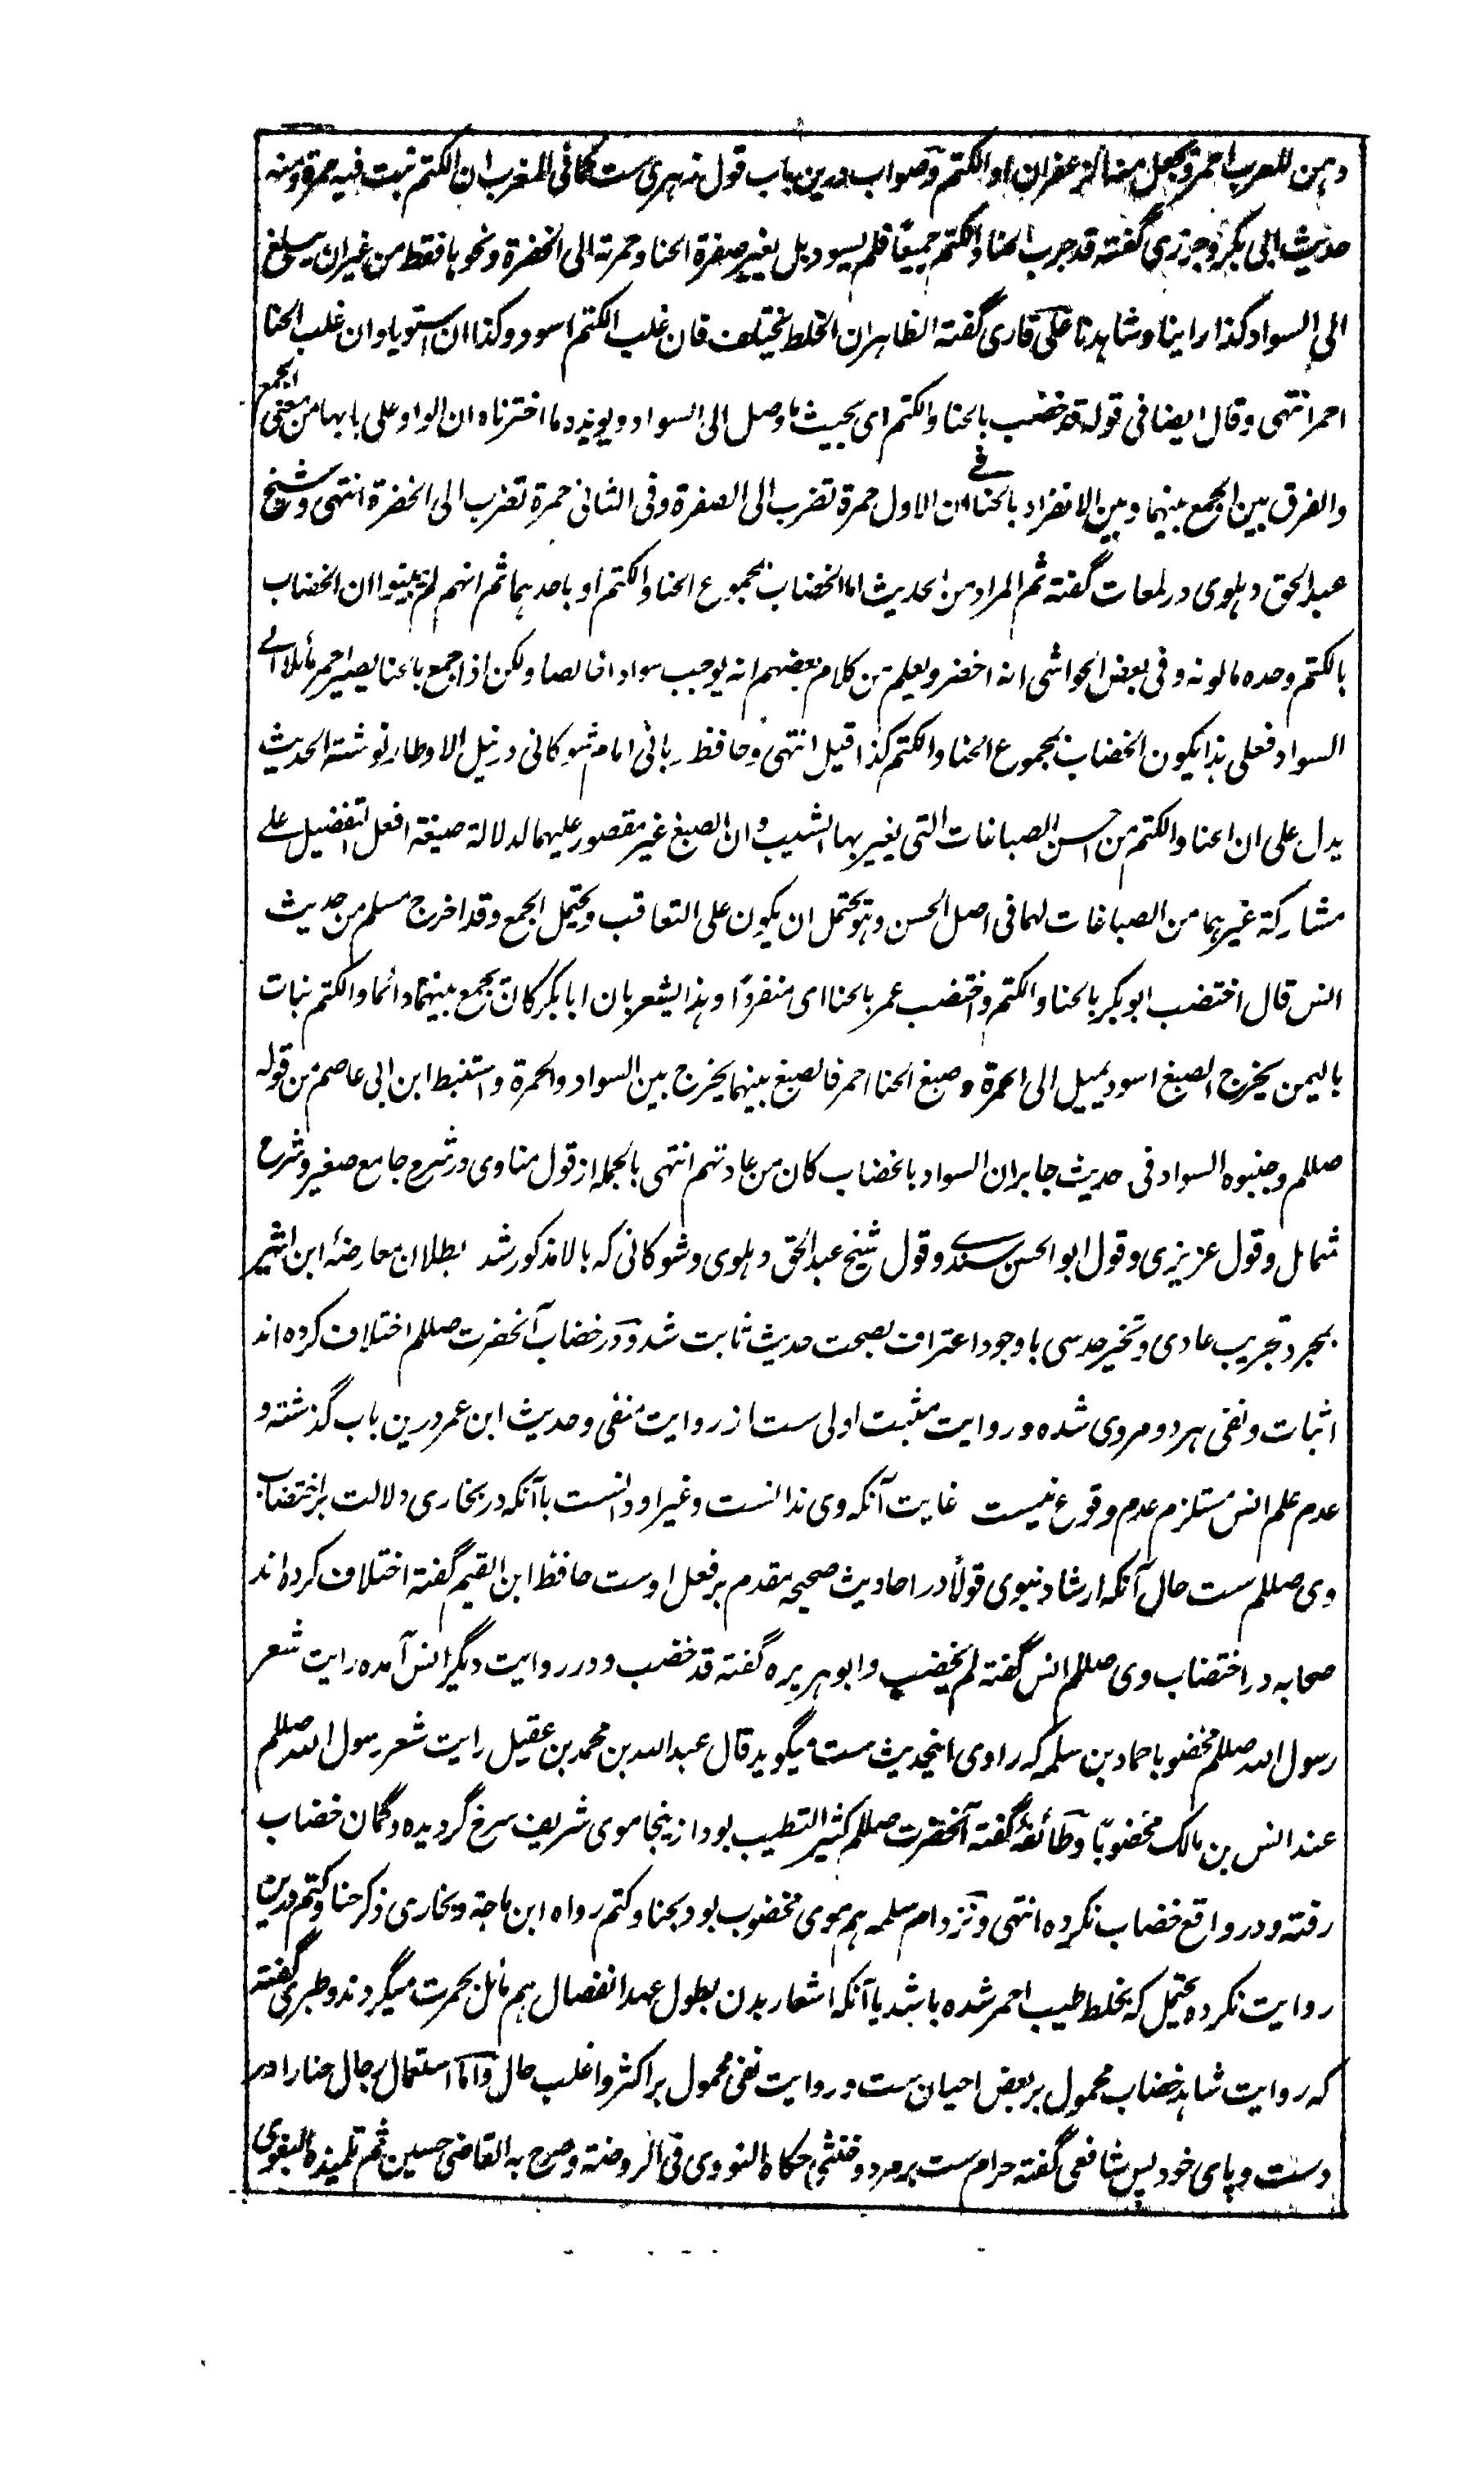 دہن للعرب احمر و یجعل منہ الزعفران او الکتم و صواب درین باب قول زہری ست کما فی المغرب ان الکتم نبت فیہ حمرة و منہ
حدیث ابی بکر و جزری گفتہ قد جرب الحنا و الکتم جمیعًا فلم یسود بل یغیر صفرة الحنا و حمرتہ الی الخضرة و نحوہا فقط من غیر ان یبلغ
الی السواد کذا راینا و شاہدنا علی قاری گفتہ الظاہر ان الخلط یختلف فان غلب الکتم اسود و کذا ان استویا و ان غلب الحنا
احمر انتہی و قال ایضا فی قولہ قد خضب بالحنا و الکتم ای بحیث ما وصل الی السواد و یویدہ ما اخترناہ ان الواو علی بابہا من معنی الجمع
و الفرق بین الجمع بینہما و بین الانفراد بالحنا ان فی الاول حمرة تضرب الی الصفرة و فی الثانی حمرة تضرب الی الخضرة انتہی و شیخ
عبد الحق دہلوی در لمعات گفتہ ثم المراد من الحدیث اما الخضاب بمجموع الحنا و الکتم او باحدہما ثم انہم لم یبینوا ان الخضاب
بالکتم وحدہ ما لونہ و فی بعض الحواشی انہ اخضر و یعلم من کلام بعضہم انہ یوجب سوادا خالصا و لکن اذا جمع بالحنا یصیر احمر مائلا الی
السواد فعلی ہذا یکون الخضاب بمجموع الحنا و الکتم کذا قیل انتہی و حافظ ربانی امام شوکانی در نیل الاوطار نوشتہ الحدیث
یدل علی ان الحنا و الکتم من احسن الصباغات التی یغیر بہا الشیب و ان الصبغ غیر مقصور علیہما لدلالة صیغة افعل التفضیل علی
مشارکة غیرہما من الصباغات لہما فی اصل الحسن و ہو یحتمل ان یکون علی التعاقب و یحتمل الجمع و قد اخرج مسلم من حدیث
انس قال اختضب ابو بکر بالحنا و الکتم و اختضب عمر بالحنا ای منفردًا و ہذا یشعر بان ابا بکر کان یجمع بینہما دائما و الکتم نبات
بالیمن یخرج الصبغ اسود یمیل الی الحمرة و صبغ الحنا احمر فالصبغ بینہما یخرج بین السواد و الحمرة و استنبط ابن ابی عاصم من قولہ
صللم و جنبوہ السواد فی حدیث جابر ان السواد بالخضاب کان من عادتہم انتہی بالجملہ از قول مناوی در شرح جامع صغیر و شرح
شمایل و قول عزیزی و قول ابو الحسن سندے و قول شیخ عبد الحق دہلوی و شوکانی کہ بالا مذکور شد بطلان معارضۂ ابن اثیر
بمجرد تجریب عادی و تخیر حدسی با وجود اعتراف بصحت حدیث ثابت شد و در خضاب آنحضرت صللم اختلاف کردہ اند
اثبات و نفی ہر دو مروی شدہ و روایت مثبت اولی ست از روایت منفی و حدیث ابن عمر درین باب گذشتہ و
عدم علم انس مستلزم عدم وقوع نیست غایت آنکہ وی ندانست و غیر او دانست با آنکہ در بخاری دلالت بر اختضاب
وی صللم ست حال آنکہ ارشاد نبوی قولًا در احادیث صحیحہ مقدم بر فعل اوست حافظ ابن القیم گفتہ اختلاف کردہ اند
صحابہ در اختضاب وی صللم انس گفتہ لم یخضب و ابو ہریرہ گفتہ قد خضب و در روایت دیگر انس آمدہ رایت شعر
رسول اللہ صللم مخضوبا حماد بن سلمہ کہ راوی اینحدیث ست میگوید قال عبد اللہ بن محمد بن عقیل رایت شعر رسول اللہ صللم
عند انس بن مالک مخضوبًا و طائفۂ گفتہ آنحضرت صللم کثیر التطیب بود ازینجا موی شریف سرخ گردیدہ و گمان خضاب
رفتہ و در واقع خضاب نکردہ انتہی و نزد ام سلمہ ہم موی مخضوب بود بحنا و کتم رواہ ابن ماجة و بخاری ذکر حنا و کتم درین
روایت نکردہ یحتمل کہ بخلط طیب احمر شدہ باشد یا آنکہ اشعار بدن بطول عہد انفصال ہم مائل بحمرت میگردند و طبری گفتہ
کہ روایت شاہد خضاب محمول بر بعض احیان ست و روایت نفی محمول بر اکثر و اغلب حال و اما استعمال رجال حنا را در
دست و پای خود پس شافعی گفتہ حرام ست بر مرد و خنثی حکاہ النووی فی الروضة و صرح بہ القاضی حسین ثم تلمیذہ البغوی